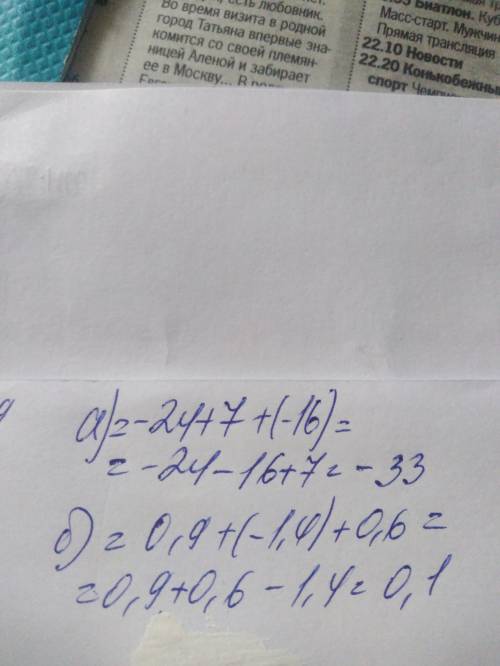 , есть любовник.
Во время визита в родной
город Татьяна впервые зна-
комится со своей племян-
ницей Аленой и забирает
ее в Москву... В
Биатлон.
Масс-старт. Мужчин
Прямая трансляция
22.10 Новости
22.20 Конькобежный
спорт
а) = -24+7 +(-16) =
= -24-16+7 = -33
б) = 0,9 +(-1,4)+0,6 =
=0,9+0,6 - 1,4 = 0,1